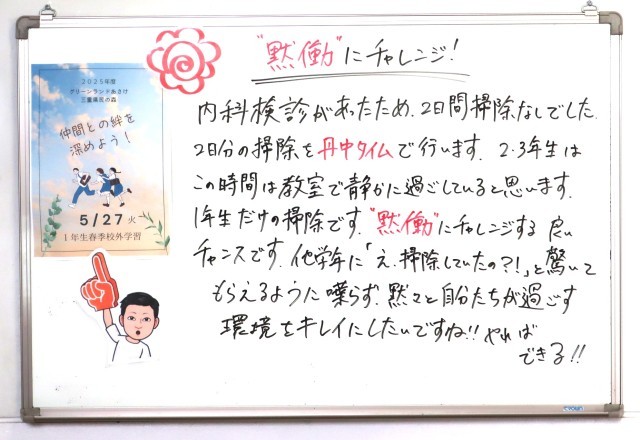 "黙働"にチャレンジ!
2025年度
グリーンランドあさけ
三重県民の森
仲間との絆を
深めよう!
5/27 火
1年生春季校外学習
内科検診があったため、2日間掃除なしでした.
2日分の掃除を丹中タイムで行います. 2・3年生は
この時間は教室で静かに過ごしていると思います.
1年生だけの掃除です."黙働"にチャレンジする 良い
チャンスです. 他学年に「え、掃除していたの?!」と驚いて
もらえるように 喋らず、黙々と自分たちが過ごす
環境をキレイにしたいですね!! やれば
できる!!